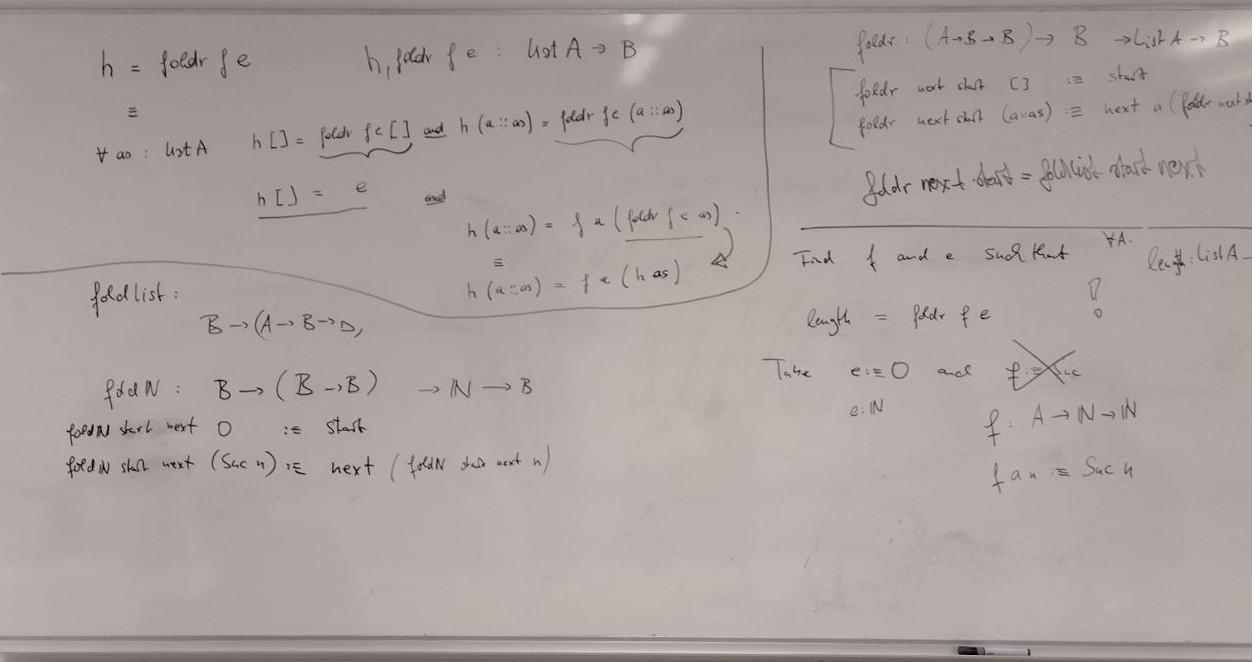 h = foldr f e    h, foldr f e : List A → B
≡
∀ as : List A    h [] = foldr f e [] and h (a :: as) = foldr f e (a :: as)
h [] = e    and
h (a :: as) = f a (foldr f e as)
≡
h (a :: as) = f a (h as)
foldlist :
B → (A → B →
foldN : B → (B → B) → ℕ → B
foldN start next 0 :≡ start
foldN start next (Suc n) :≡ next (foldN start next n)
foldr : (A → B → B) → B → List A → B
foldr next start [] :≡ start
foldr next start (a::as) :≡ next a (foldr next
foldr next start = foldlist start next
Find f and e such that ∀A. length : List A →
length = foldr f e
Take e :≡ 0 and f :≡ Suc
e : ℕ
f : A → ℕ → ℕ
f a n ≡ Suc n